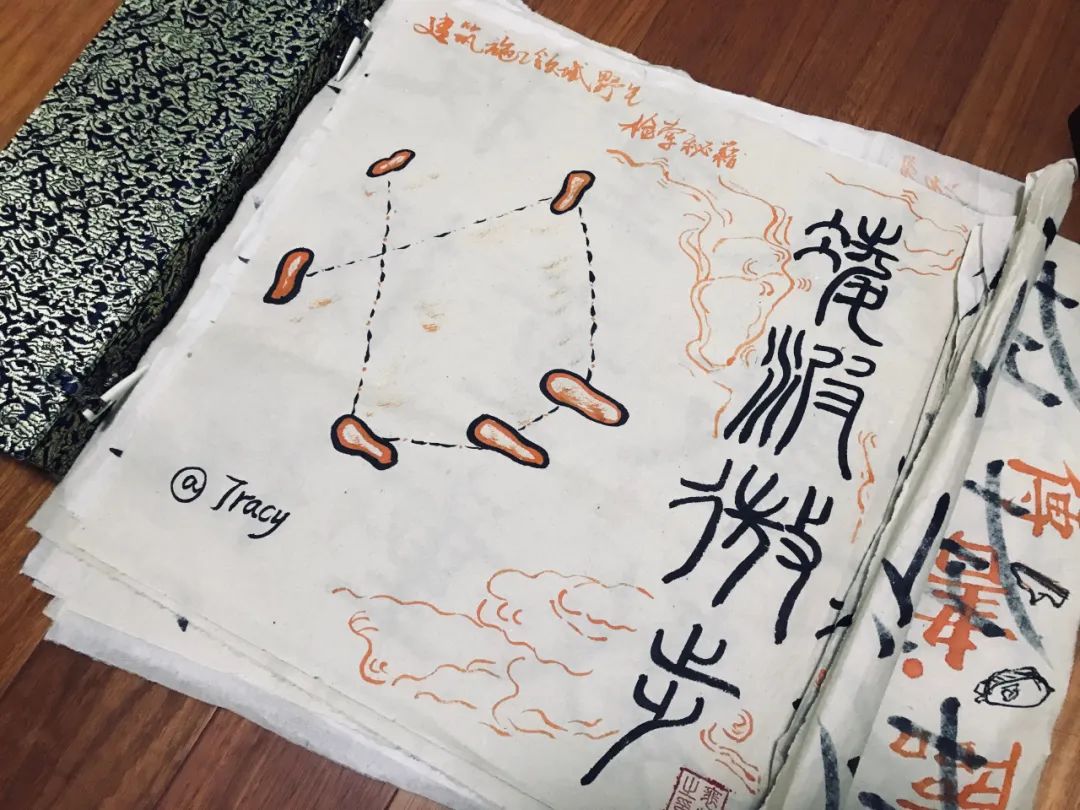 建筑施工领域野生
检索秘籍
凌波微步
@Tracy
傳